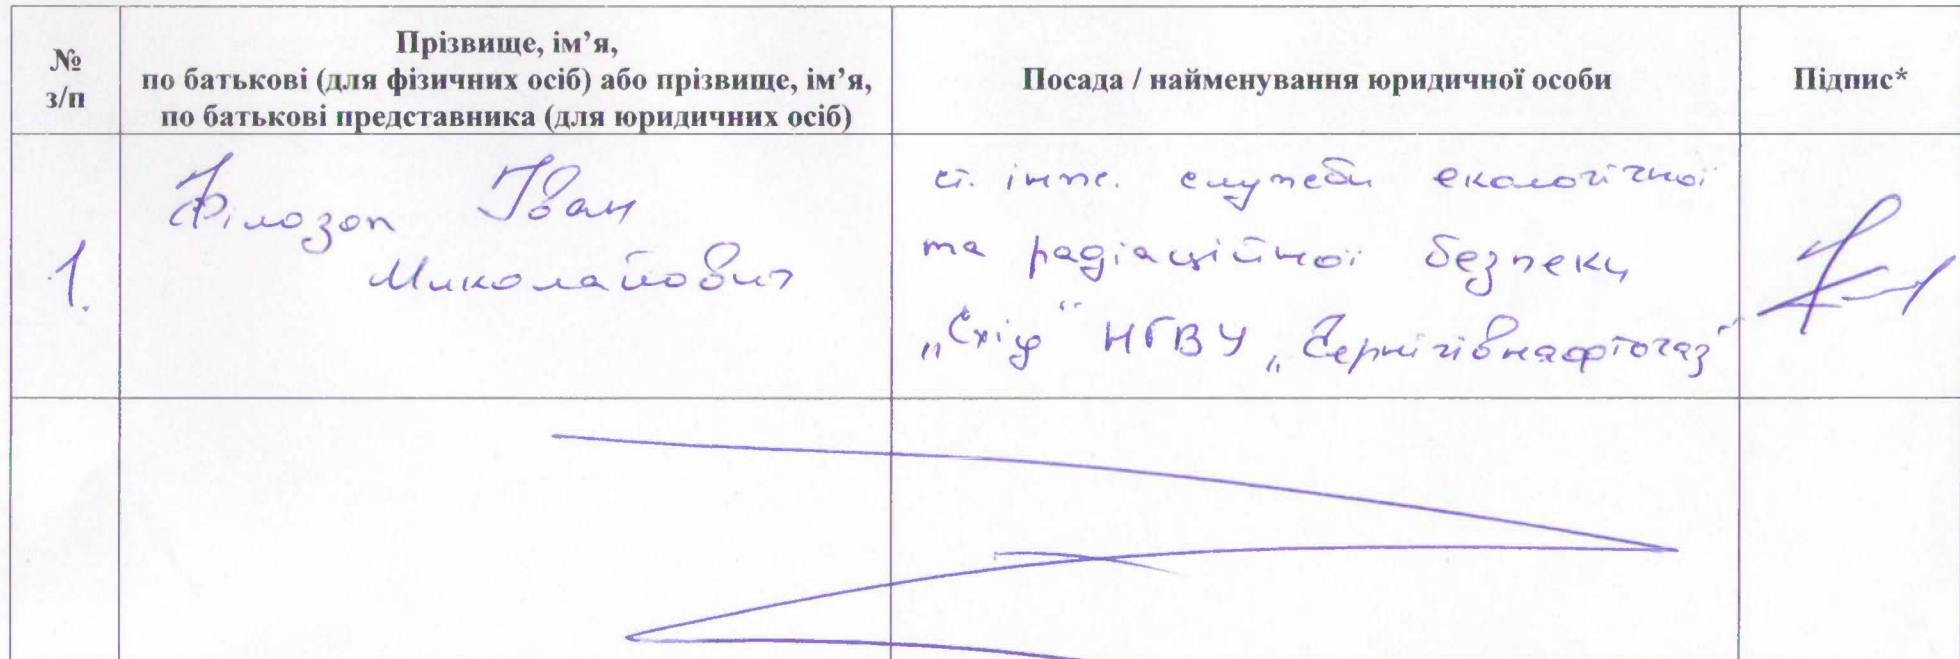 №
з/п
Прізвище, ім’я,
по батькові (для фізичних осіб) або прізвище, ім’я,
по батькові представника (для юридичних осіб)
Посада / найменування юридичної особи
Підпис*
1.
Філозоп Іван
Миколайович
ст. інж. служби екологічної
та радіаційної безпеки
„Схід“ НГВУ „Чернігівнафтогаз“